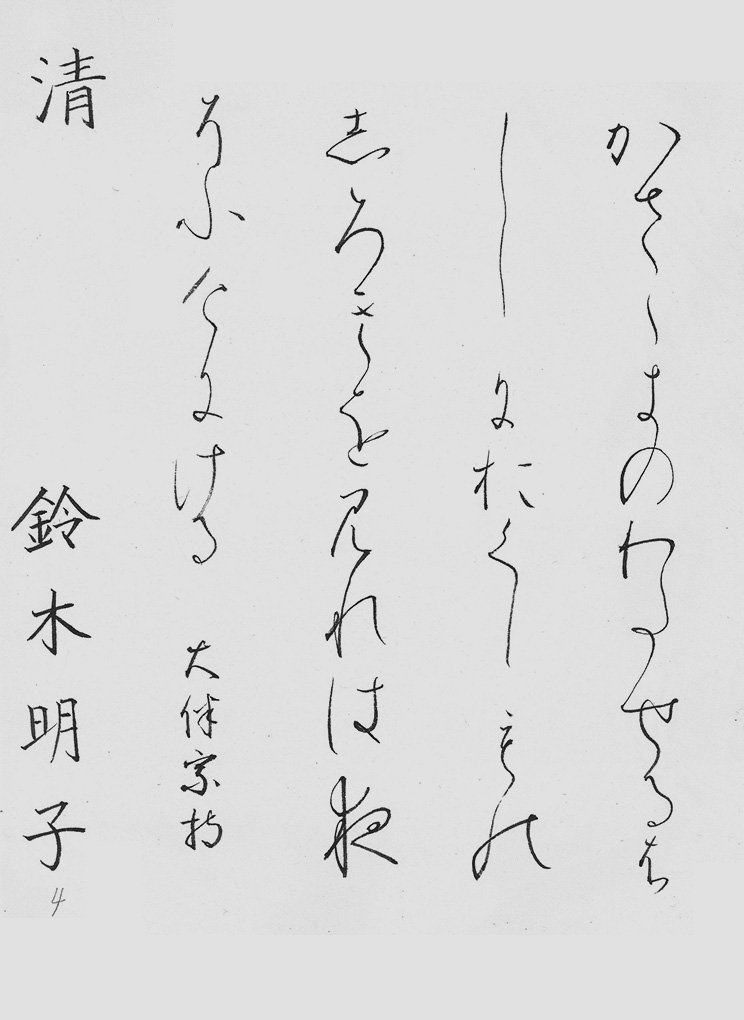 かさゝきのわたせるは
しにおくしもの
しろきを見れは夜
そふけにける 大伴家持
清 鈴木明子
4